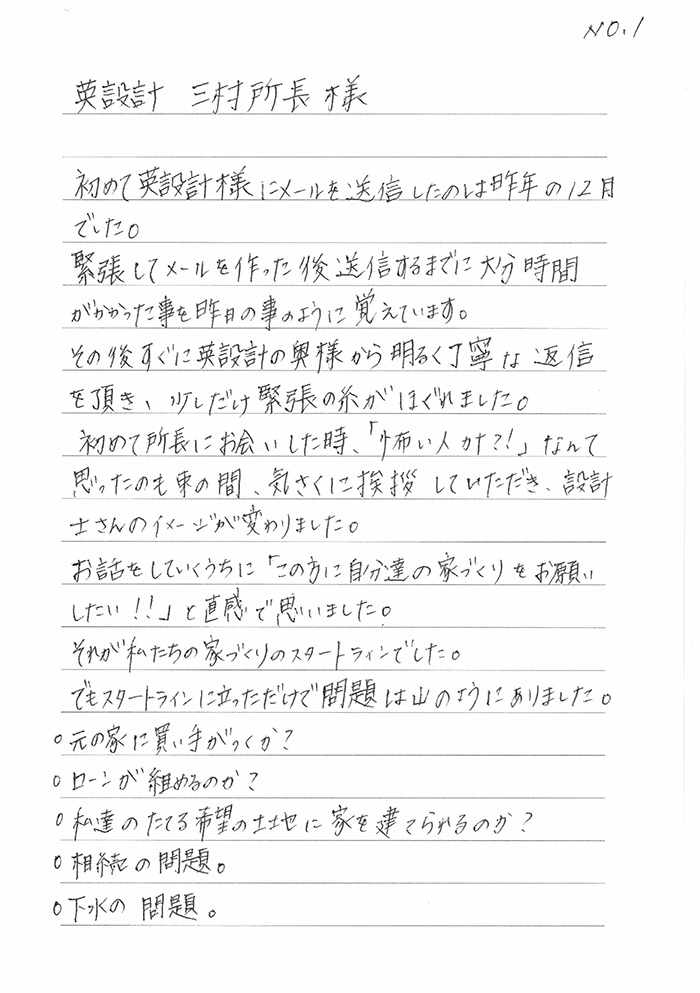 NO.1
英設計　三村所長様
初めて英設計様にメールを送信したのは昨年の12月
でした。
緊張してメールを作った後送信するまでに大分時間
がかかった事を昨日の事のように覚えています。
その後すぐに英設計の奥様から明るく丁寧な返信
を頂き、少しだけ緊張の糸がほぐれました。
初めて所長にお会いした時、「怖い人かな?!」なんて
思ったのも束の間、気さくに挨拶していただき、設計
士さんのイメージが変わりました。
お話をしていくうちに「この方に自分達の家づくりをお願い
したい!!」と直感で思いました。
それが私たちの家づくりのスタートラインでした。
でもスタートラインに立っただけで問題は山のようにありました。
○元の家に買い手がつくか?
○ローンが組めるのか?
○私達のたてる希望の土地に家を建てられるのか?
○相続の問題。
○下水の問題。